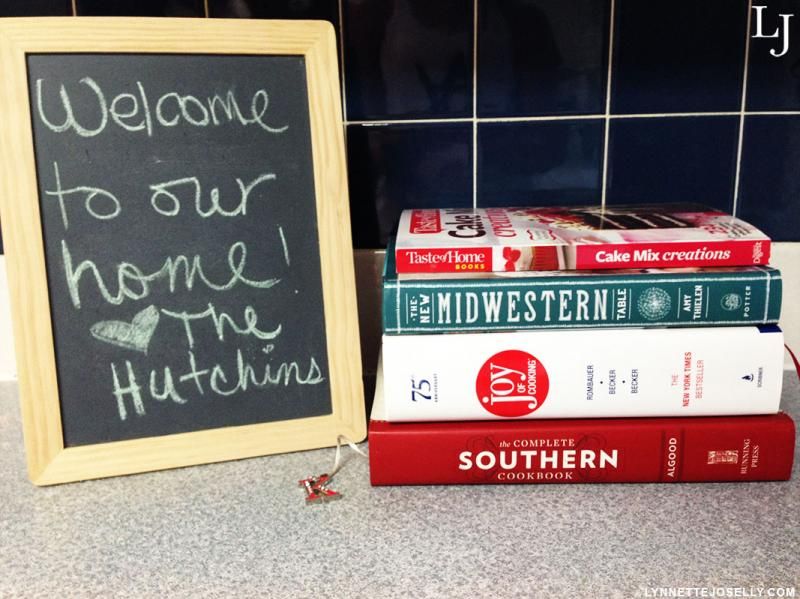 LJ
Welcome
to our
home!
The
Hutchins
Taste of Home
Cake
creations
Taste of Home
BOOKS
Cake Mix creations
THE NEW MIDWESTERN TABLE AMY THIELEN POTTER
75th
ANNIVERSARY
joy
OF
COOKING
ROMBAUER • BECKER • BECKER
THE
NEW YORK TIMES
BESTSELLER
SCRIBNER
the COMPLETE
SOUTHERN
COOKBOOK
ALGOOD
RUNNING
PRESS
K
LYNNETTEJOSELLY.COM